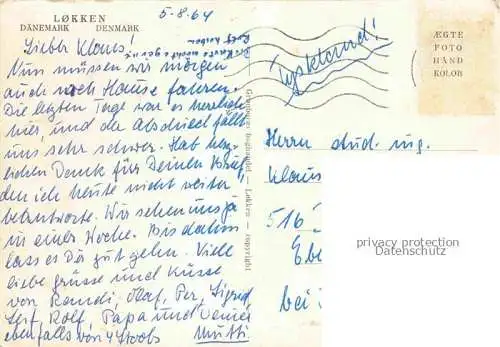 LØKKEN
DÄNEMARK DENMARK
5-8.64
Lieber Klaus!
Nun müssen wir morgen
auch nach Hause fahren.
Die letzten Tage war es herrlich
hier, und der Abschied fällt
uns sehr schwer. Hab herz-
lichen Dank für Deinen Brief,
den ich heute nicht weiter
beantworte. Wir sehen uns ja
in einer Woche. Bis dahin
lass es Dir gut gehn. Viele
liebe Grüsse und Küsse
von Randi, Olaf, Per, Sigrid,
Leif, Rolf, Papa und Deiner
ebenfalls von 4 Stoobs Mutti
Løkken - copyright
Tyskland!
ÆGTE
FOTO
HÅND
KOLOR
Herrn stud. ing.
Klaus
516
Ebe
bei
privacy protection
watermark Ansichtskarten